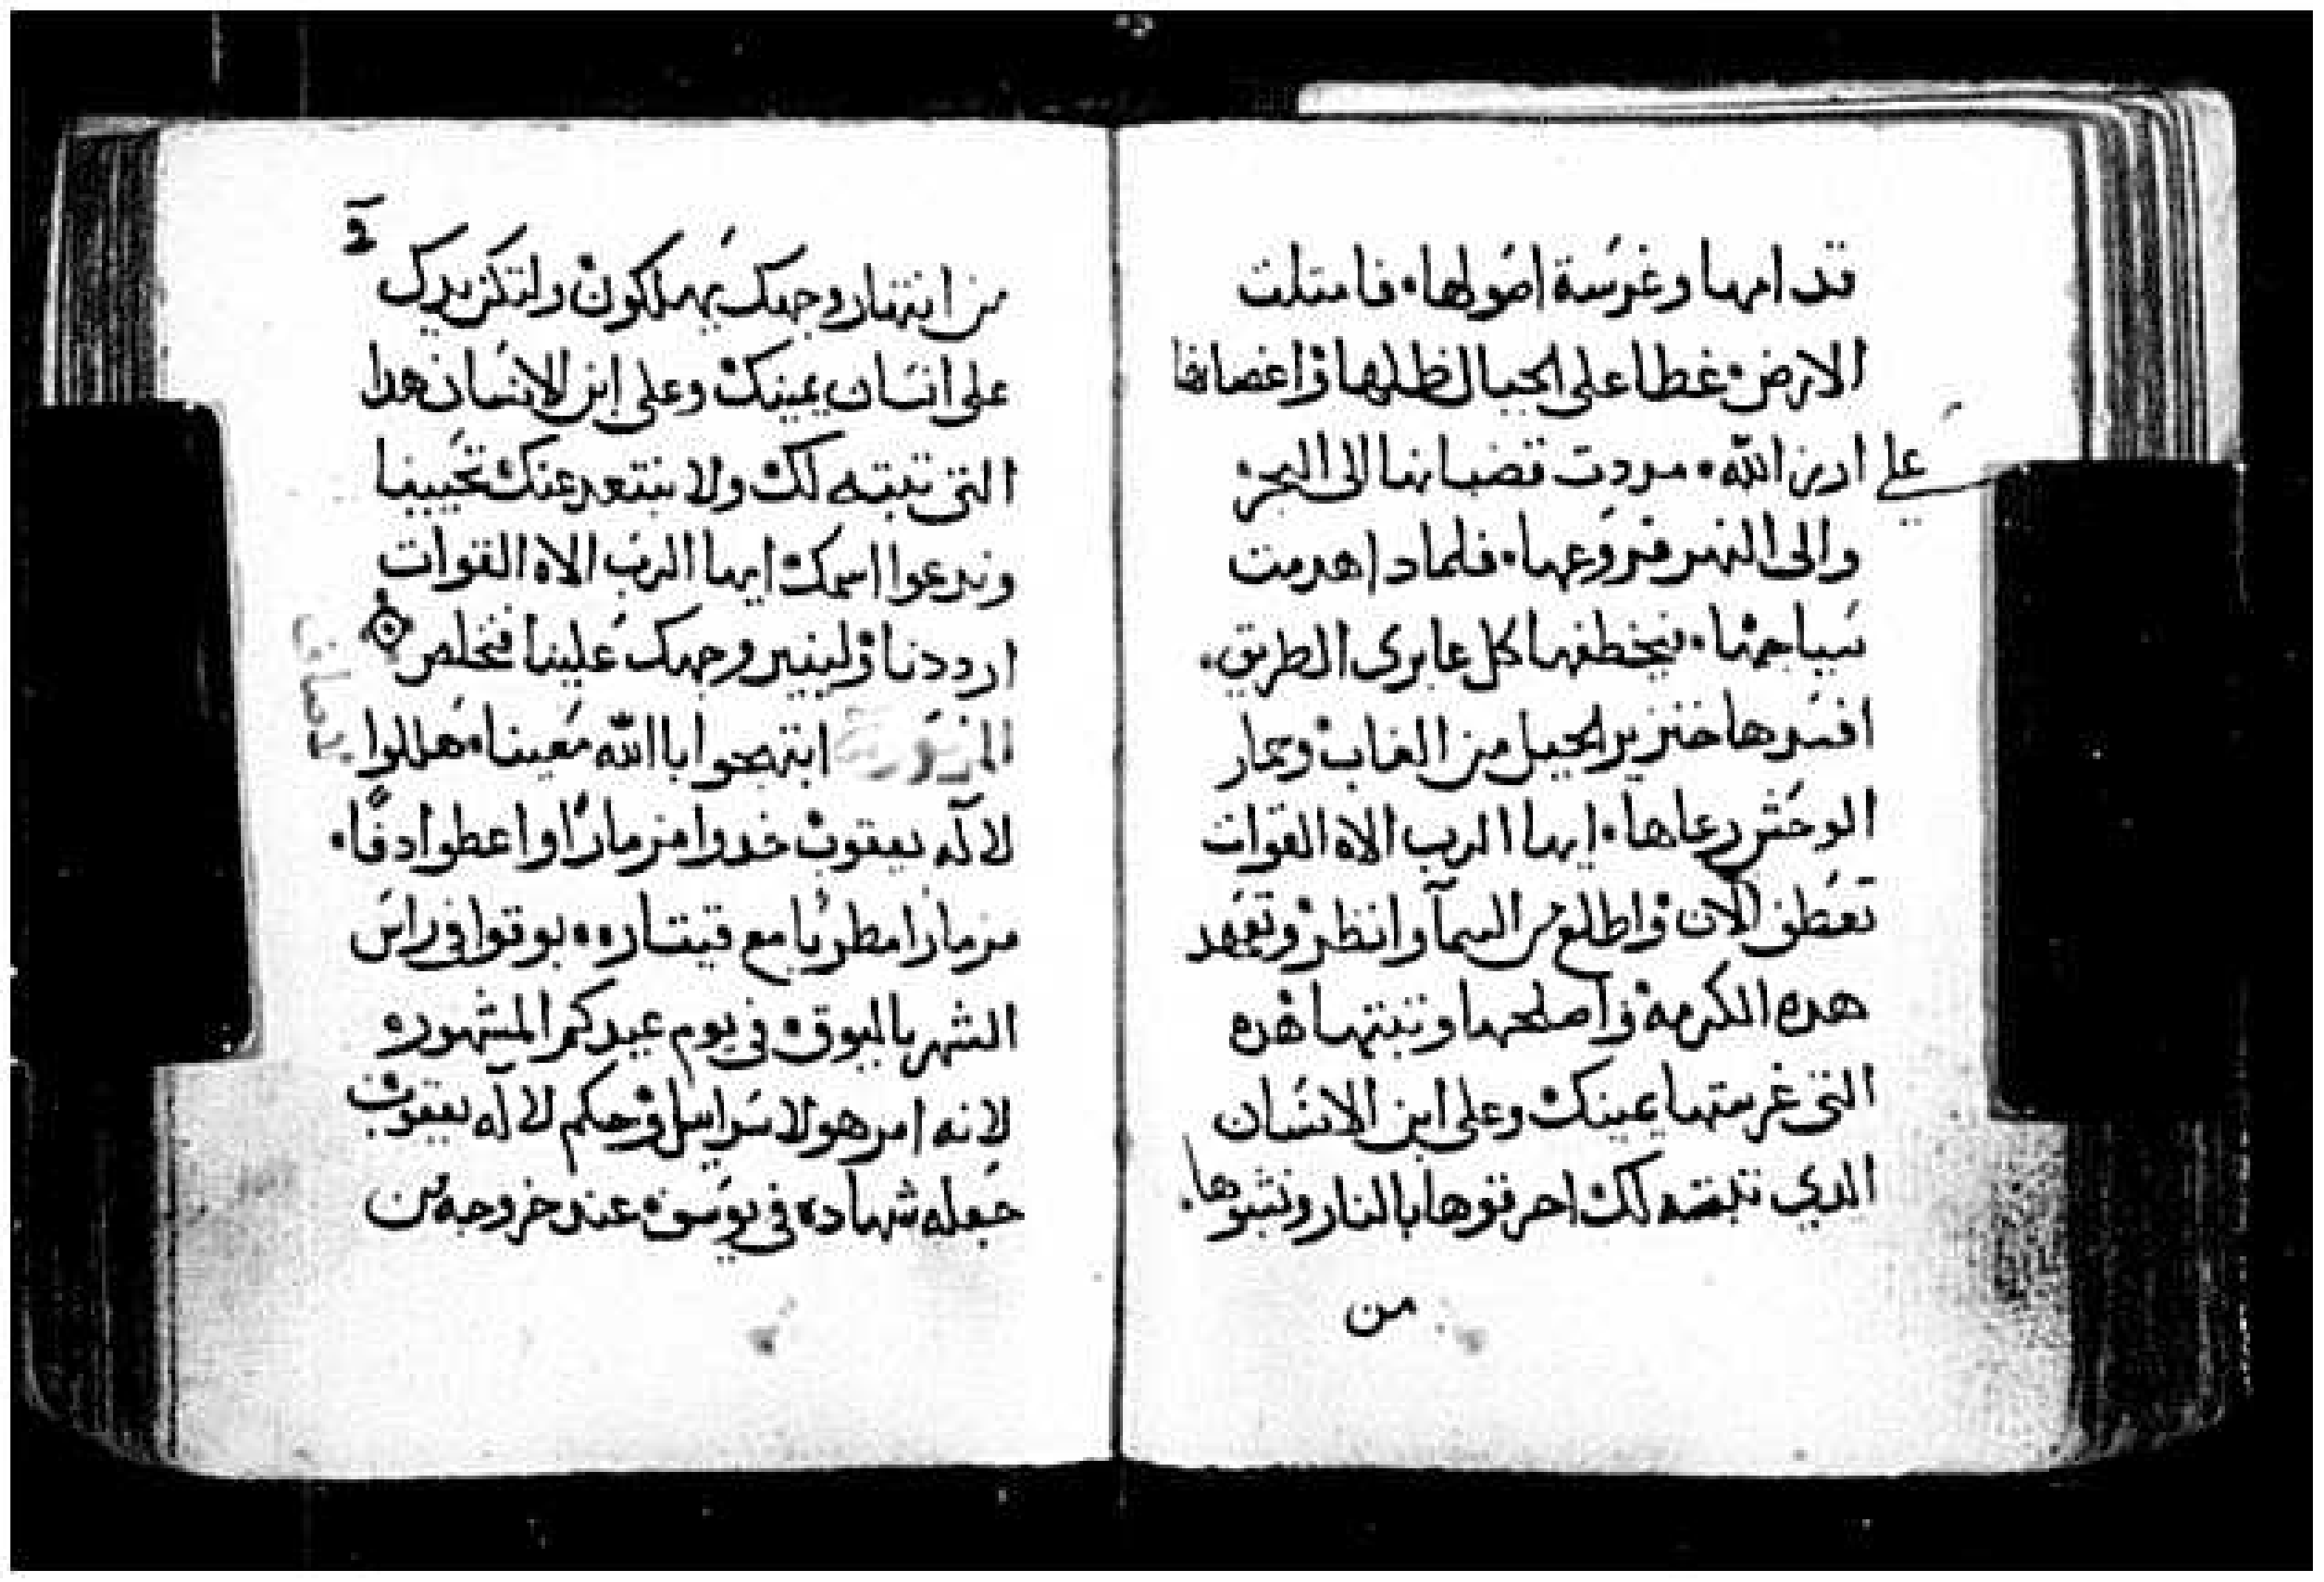 قدامها وغرسة اصولها. فامتلت
الارض. غطا على الجبال ظلها واغصانها
على ارز الله. مددت قضبانها الى البحر.
والى النهر فروعها. فلمادا هدمت
سياجها. فيخطفها كل عابرى الطريق.
افسدها خنزير الجبل من الغاب وحمار
الوحش رعاها. ايها الرب الاه القوات
تعطف الان واطلع من السمآ وانظر وتعهد
هده الكرمه واصلحها وتبتها هده
التى غرستها يمينك وعلى ابن الانسان
الدي تبته لك احرقوها بالنار ونبشوها.
من
من انتهار وجهك يهلكون ولتكن يدك
على انسان يمينك وعلى ابن الانسان هدا
التى تبته لك ولا نبتعد عنك تحيينا
وندعوا اسمك ايها الرب الاه القوات
ارددنا ولينير وجهك علينا فنخلص
ابتهجوا باالله معيننا. هللوا
لالٓه يعقوب خدوا مزمارًا واعطوا دفًا.
مزمارا مطربا مع قيتاره. بوقوا فى راس
الشهر بالبوق. فى يوم عيدكم المشهوره
لانه امر هو لاسراييل وحكم لالٓه يعقوب
جعله شهاده فى يوسف. عند خروجه من